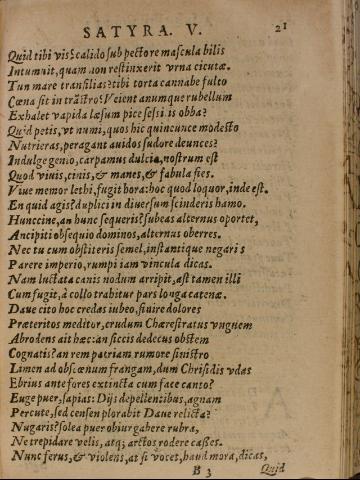 SATYRA. V. 21
Quid tibi vis? calido sub pectore mascula bilis
Intumuit, quam non restinxerit vrna cicutæ.
Tun mare transilias? tibi torta cannabe fulto
Cœna sit in trãstro? Veientanumque rubellum
Exhalet vapida læsum pice sessilis obba?
Quid petis, vt numi, quos hic quincunce modesto
Nutrieras, peragant auidos sudore deunces?
Indulge genio, carpamus dulcia, nostrum est
Quod viuis, cinis, & manes, & fabula fies.
Viue memor lethi, fugit hora: hoc quod loquor, inde est.
En quid agis? duplici in diuersum scinderis hamo.
Hunccine, an hunc sequeris? subeas alternus oportet,
Ancipiti obsequio dominos, alternus oberres.
Nec tu cum obstiteris semel, instantique negaris
Parere imperio, rumpi iam vincula dicas.
Nam luctata canis nodum arripit, ast tamen illi
Cum fugit, à collo trahitur pars longa catenæ.
Daue cito hoc credas iubeo, finire dolores
Præteritos meditor, crudum Chærestratus vnguem
Abrodens ait hæc: an siccis dedecus obstem
Cognatis? an rem patriam rumore sinistro
Limen ad obscœnum frangam, dum Chrisidis vdas
Ebrius ante fores extincta cum face canto?
Euge puer, sapias: Dijs depellentibus, agnam
Percute, sed censen plorabit Daue relicta?
Nugaris? solea puer obiurgabere rubra,
Ne trepidare velis, atq; arctos rodere casses.
Nunc ferus, & violens, at si vocet, haud mora, dicas,
B 3 Quid